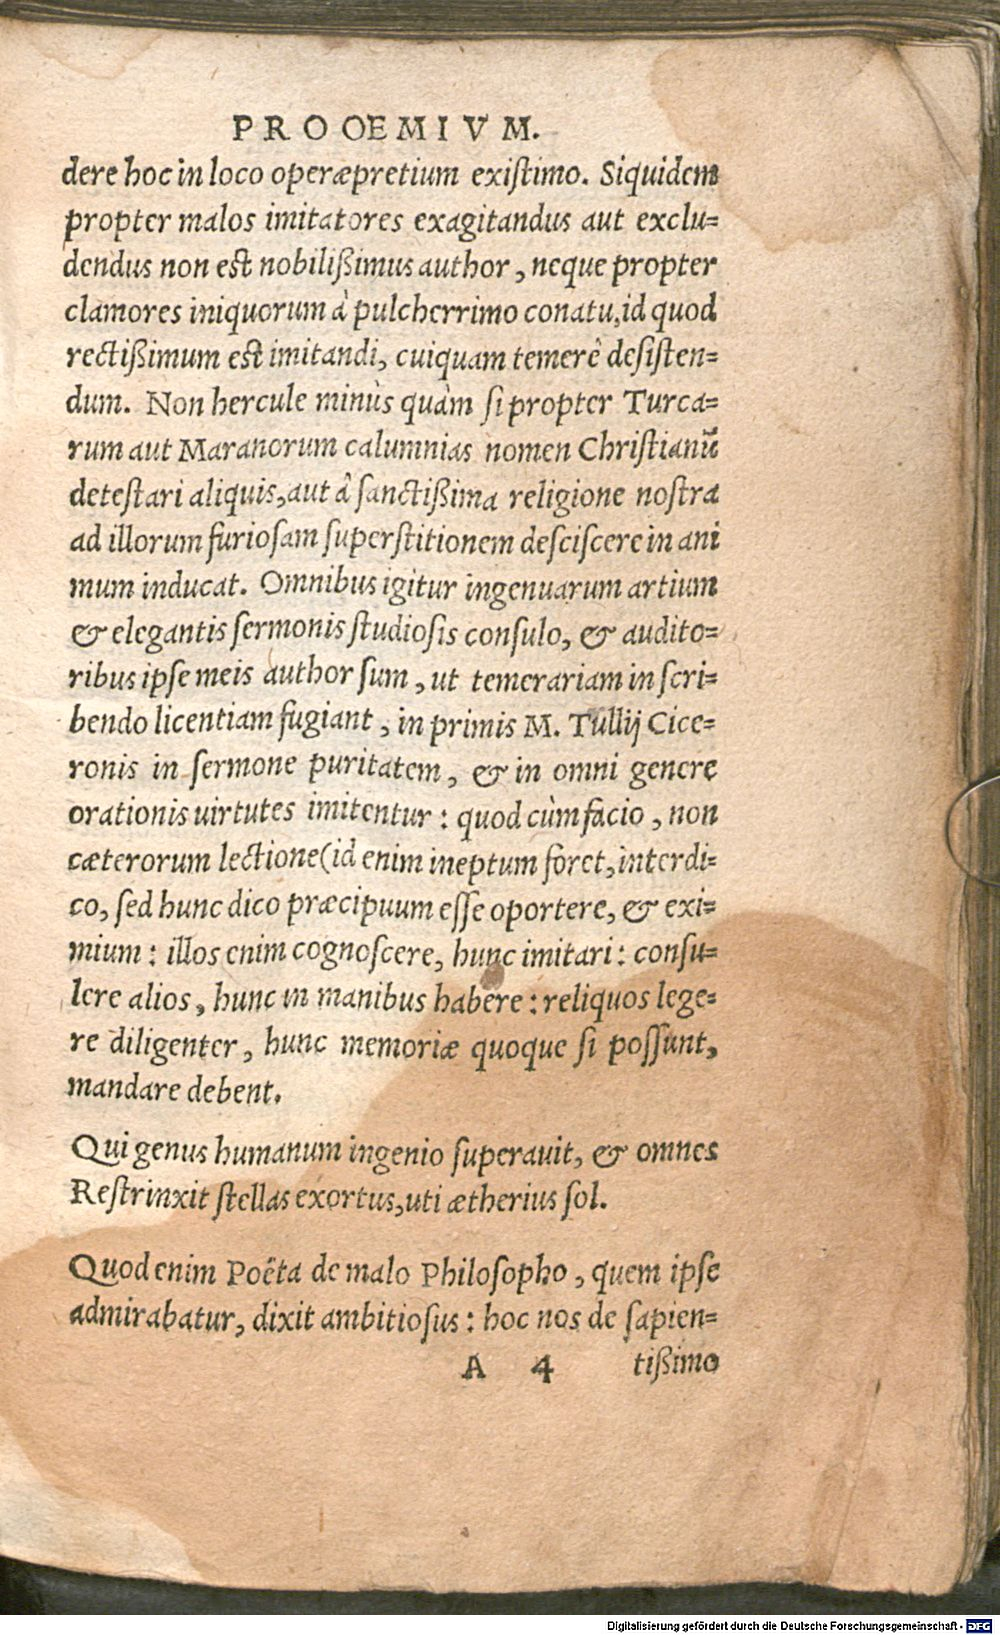 PROOEMIVM.
dere hoc in loco operæpretium existimo. Siquidem
propter malos imitatores exagitandus aut exclu-
dendus non est nobilißimus author, neque propter
clamores iniquorum â pulcherrimo conatu, id quod
rectißimum est imitandi, cuiquam temerê desisten-
dum. Non hercule minùs quàm si propter Turca-
rum aut Maranorum calumnias nomen Christianũ
detestari aliquis, aut â sanctißima religione nostra
ad illorum furiosam superstitionem desciscere in ani
mum inducat. Omnibus igitur ingenuarum artium
& elegantis sermonis studiosis consulo, & audito-
ribus ipse meis author sum, ut temerariam in scri-
bendo licentiam fugiant, in primis M. Tullij Cice-
ronis in sermone puritatem, & in omni genere
orationis uirtutes imitentur: quod cùm facio, non
cæterorum lectione (id enim ineptum foret, interdi-
co, sed hunc dico præcipuum esse oportere, & exi-
mium: illos enim cognoscere, hunc imitari: consu-
lere alios, hunc in manibus habere: reliquos lege-
re diligenter, hunc memoriæ quoque si possunt,
mandare debent.
Qui genus humanum ingenio superauit, & omnes
Restrinxit stellas exortus, uti ætherius sol.
Quod enim Poëta de malo Philosopho, quem ipse
admirabatur, dixit ambitiosus: hoc nos de sapien-
A 4 tißimo
Digitalisierung gefördert durch die Deutsche Forschungsgemeinschaft - DFG